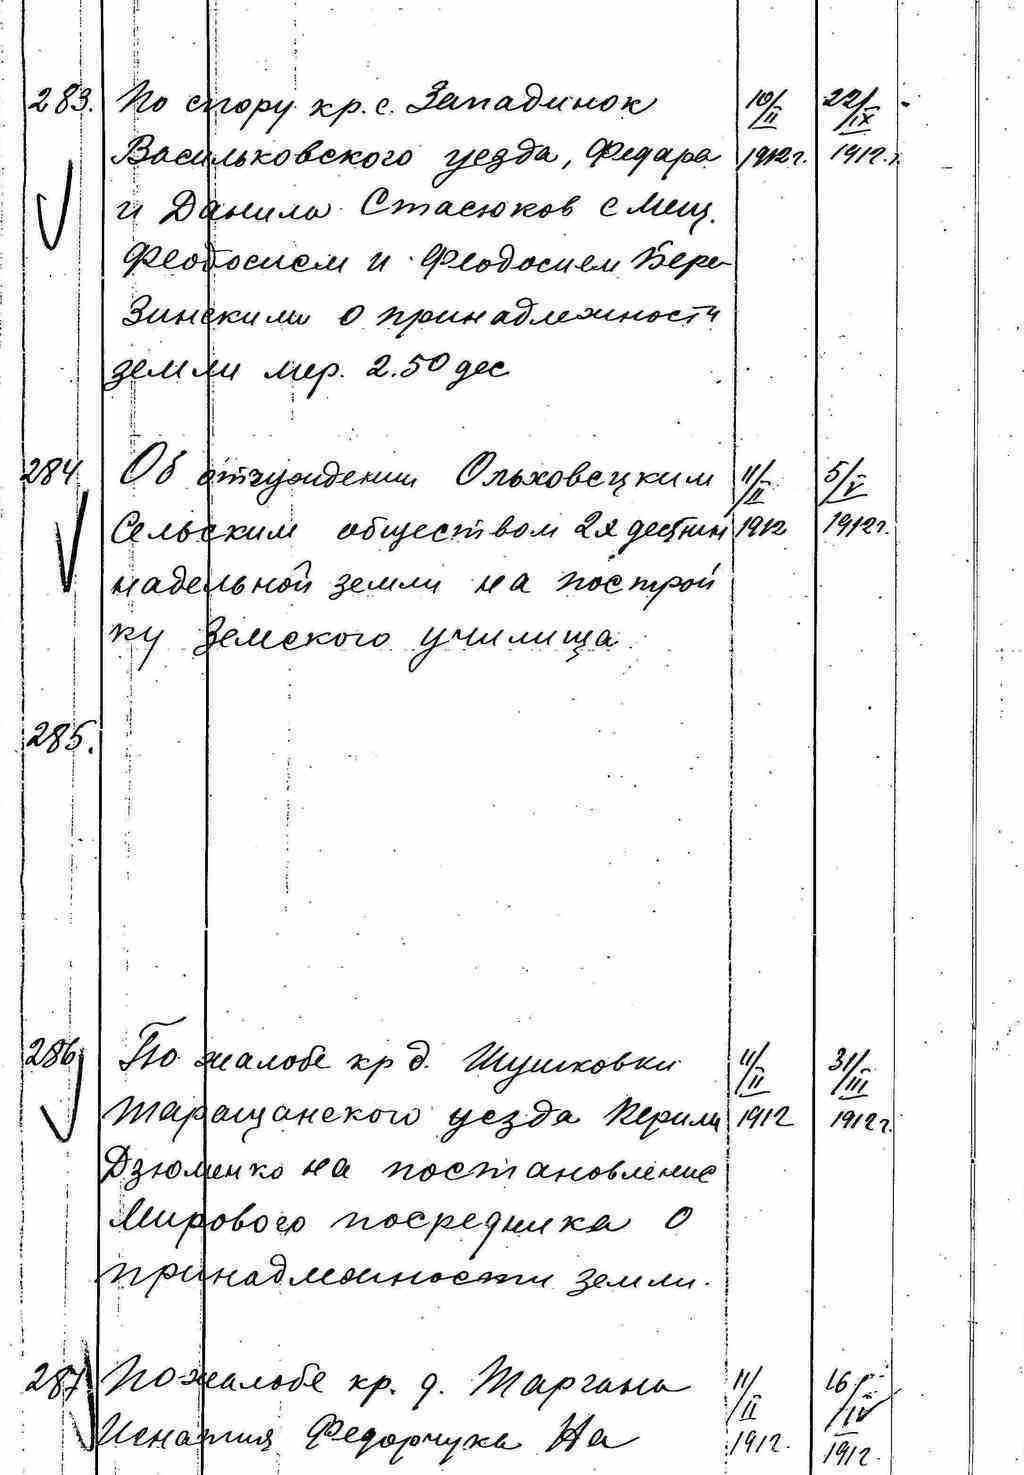 283. По спору кр. с. Западинок 10/II 22/IX
Васильковского уезда, Федара 1912 г. 1912 г.
и Данила Стасюков с мещ.
Феодосием и Феодосием Бере-
зинскими о принадлежности
земли мер. 2.50 дес
284 Об отчуждении Ольховецким 11/II 5/V
Сельским обществом 2х десятин 1912 1912 г.
надельной земли на построй
ку Земского училища
285.
286 По жалобе кр д. Шушковки 11/II 31/III
Таращанского уезда Керили 1912 1912 г.
Дзюменко на постановление
Мирового посредника о
принадлежности земли.
287 По жалобе кр. д. Таргана 11/II 16/IV
Игнатия Федорчука На 1912. 1912.